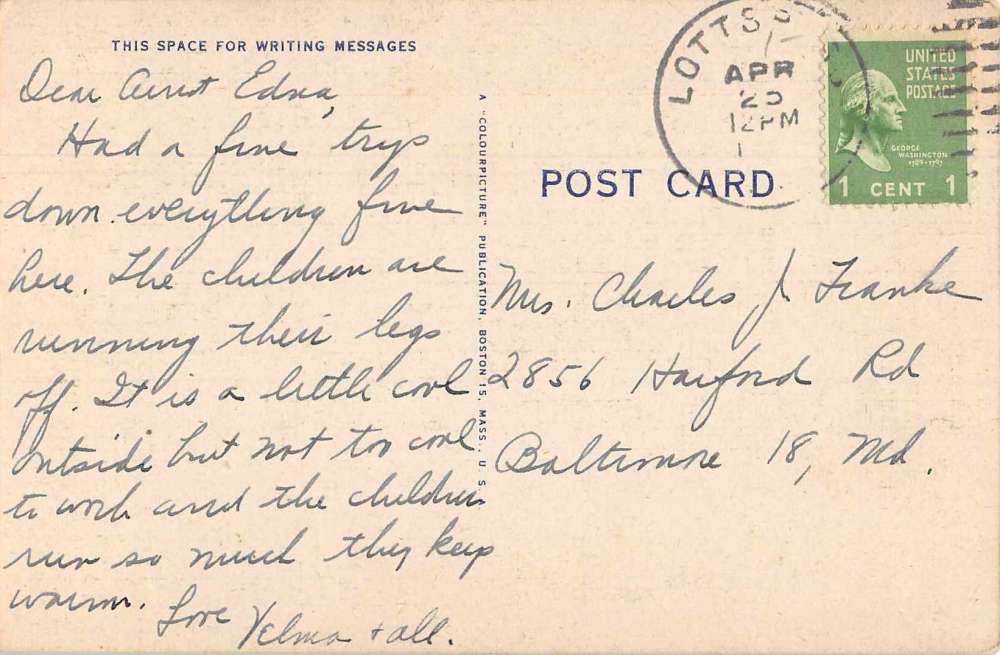 THIS SPACE FOR WRITING MESSAGES
Dear Aunt Edna,
Had a fine trip
down everything fine
here. The children are
running their legs
off. It is a little cool
outside but not too cool
to work and the children
run so much they keep
warm.
Love
Velma + all.
A "COLOURPICTURE" PUBLICATION, BOSTON 15, MASS., U. S.
POST CARD
LOTTSB
APR
12PM
UNITED
STATES
POSTAGE
GEORGE
WASHINGTON
1789-1797
1 CENT 1
Mrs. Charles J Franke
2856 Harford Rd
Baltimore 18, Md.